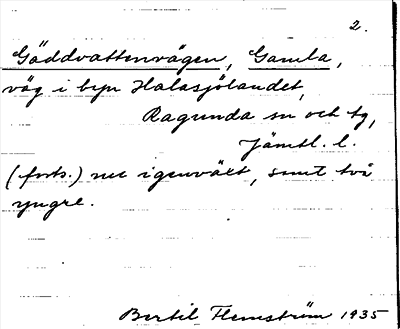 2.
Gäddvattenvägen, Gamla,
väg i byn Halasjölandet,
Ragunda sn och tg,
Jämtl. l.
(forts.) nu igenväxt, samt två
yngre.
Bertil Flemström 1935